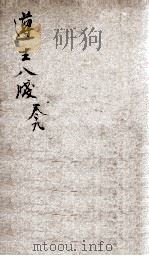 遵生八牋
卷九
研狗
www.yangou.info